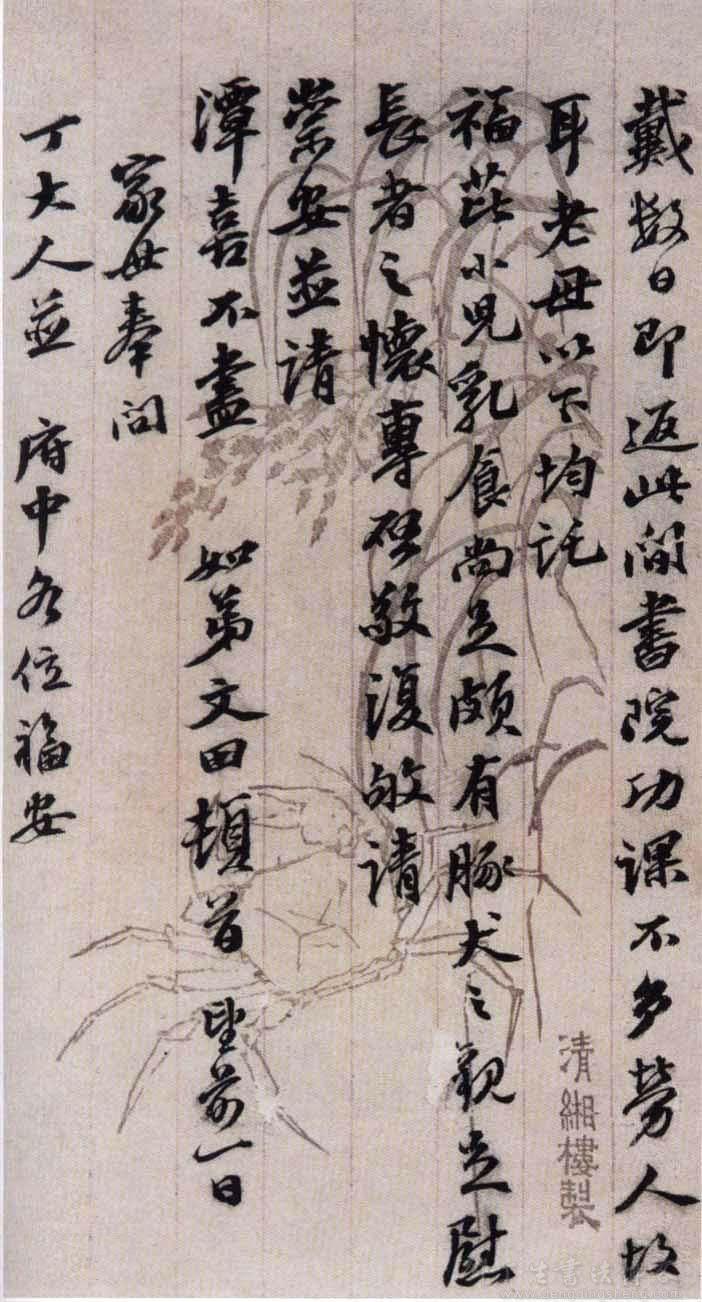 戴数日即返此间書院功课不多勞人故
耳老母以下均託
福芘小児乳食尚足頗有豚犬之觀足慰
長者之懷專啓敬復敬請
崇安並請
潭喜不盡 如弟文田頓首 望前一日
家母奉问
丁大人並 府中各位福安
清緗樓製